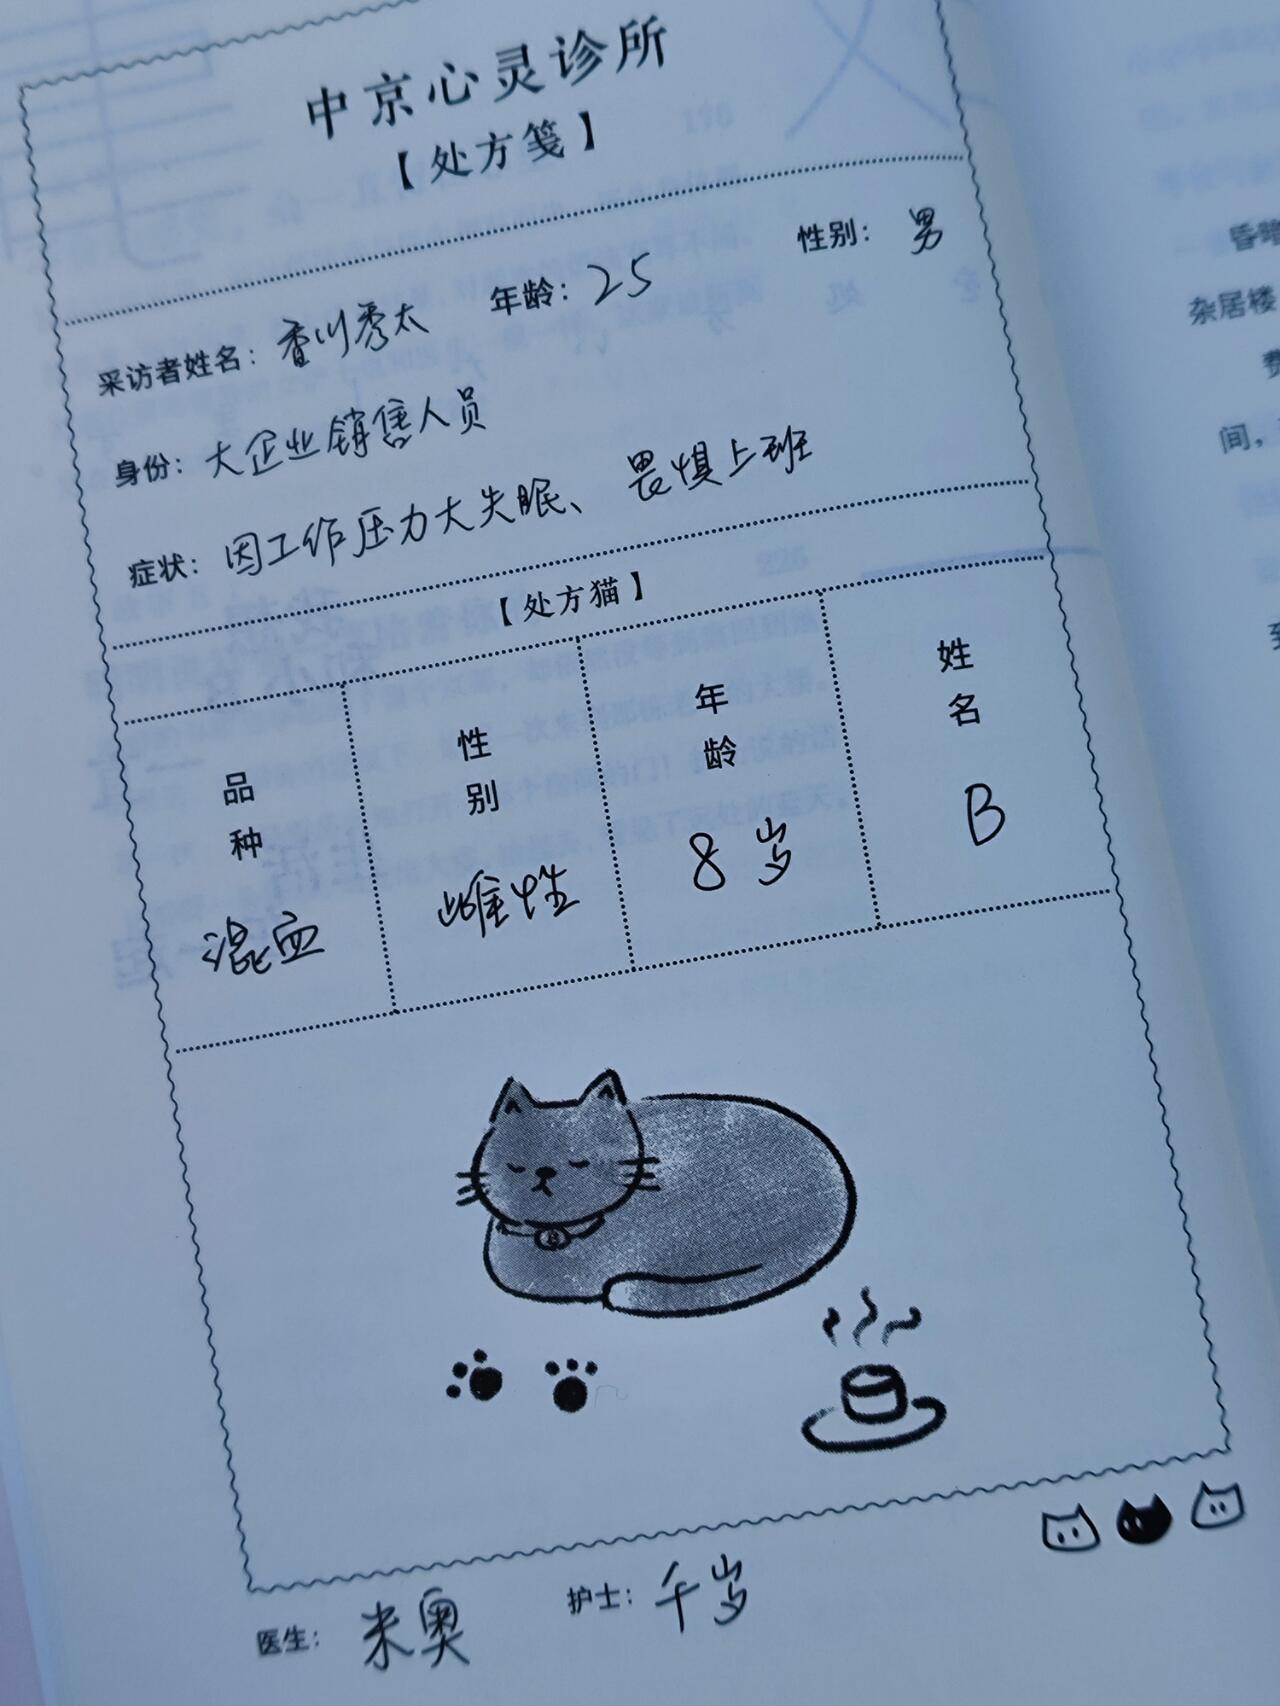 中京心灵诊所
【处方笺】
采访者姓名：香川秀太 年龄：25 性别：男
身份：大企业销售人员
症状：因工作压力大失眠、畏惧上班
【处方猫】
品种 性别 年龄 姓名
混血 雌性 8岁 B
医生：米奥 护士：千岁
昏暗
杂居楼
间，